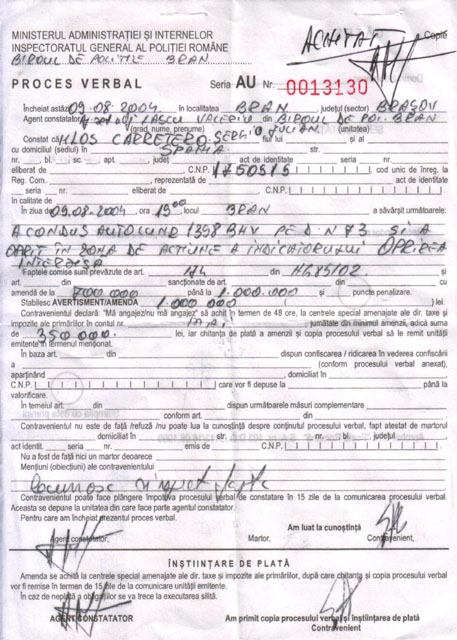 MINISTERUL ADMINISTRAȚIEI ȘI INTERNELOR
INSPECTORATUL GENERAL AL POLIȚIEI ROMÂNE
BIROUL DE POLITIE BRAN
ACHITAT
Copie
PROCES VERBAL Seria AU Nr. 0013130
Încheiat astăzi 09.08.2004 în localitatea BRAN, județul (sector) BRAȘOV
Agent constatator LASCU VALERIU din BIROUL DE POL. BRAN
(grad, nume, prenume) (unitatea)
Constat că KLOS CARRETERO SERGIO JULIAN fiul lui și al
cu domiciliul (sediul) în SPANIA str.
nr. bl. sc. apt. județ act de identitate seria nr.
eliberat de C.N.P. cod unic de înreg. la
Reg. Com. , reprezentată de act de identitate
seria nr. eliberat de C.N.P.
în calitate de
În ziua de 09.08.2004, ora 19:00 în BRAN a săvârșit următoarele:
A CONDUS AUTO CU NR 1398 BHV PE DN 73 SI A
OPRIT IN ZONA DE ACTIUNE A INDICATORULUI OPRIREA
INTERZISA
Faptele comise sunt prevăzute de art. din HG 85/02
art. din sancționate de art. din cu
amendă de la 700 000 până la 1.000.000 și puncte penalizare.
Stabilesc AVERTISMENT/AMENDA 1.000 000 ( ) lei.
Contravenientul declară: "Mă angajez/nu mă angajez" să achit în termen de 48 ore, la centrele special amenajate ale dir. taxe și
impozite ale primăriilor în contul nr. jumătate din minimul amenzii, adică suma
de 350 000. lei, iar chitanța de plată a amenzii și copia procesului verbal să le remit unității
emitente în termenul menționat.
În baza art. din dispun confiscarea / ridicarea în vederea confiscării
a (conform procesului verbal anexat),
aparținând , domiciliat în
C.N.P. care vor fi depuse la până la
valorificare.
În temeiul art. din dispun următoarele măsuri complementare
conform art. din
Contravenientul nu este de față /refuză /nu poate lua la cunoștință despre conținutul procesului verbal, fapt atestat de martorul
domiciliat în str. nr. bl. județul
act identit. seria nr. emis de C.N.P.
Nu a fost de față nici un martor deoarece
Mențiuni (obiecțiuni) ale contravenientului
Contravenientul poate face plângere împotriva procesului verbal de constatare în 15 zile de la comunicarea procesului verbal.
Aceasta se depune la unitatea din care face parte agentul constatator.
Pentru care am încheiat prezentul proces verbal.
Am luat la cunoștință
Agent constatator, Martor, Contravenient,
ÎNȘTIINȚARE DE PLATĂ
Amenda se achită la centrele special amenajate ale dir. taxe și impozite ale primăriilor, după care chitanța și copia procesului verbal
vor fi remise în termen de 15 zile de la comunicare unității emitente.
În caz de neplată a obligațiilor se va trece la executarea silită.
AGENT CONSTATATOR Am primit copia procesului verbal și înștiințarea de plată
Contravenient